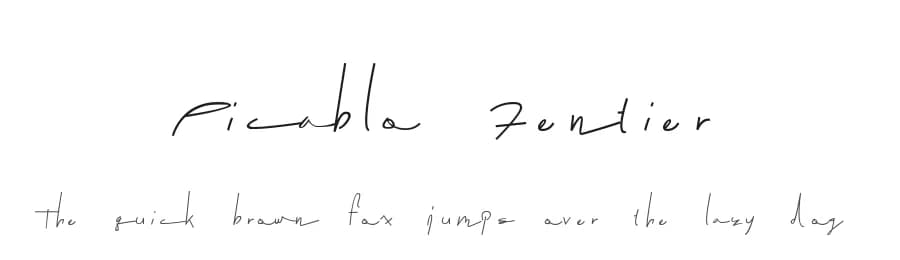 Picablo Zentier
the quick brown fox jumps over the lazy dog